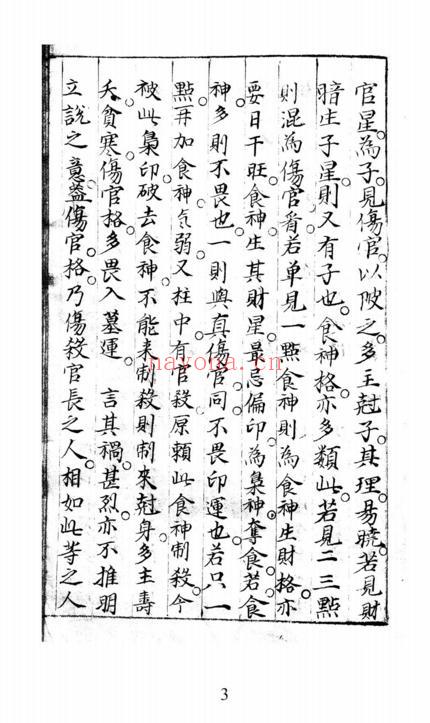 官星為子見傷官以破之多主尅子其理易曉若見財
暗生子星則又有子也食神格亦多類此若見二三點
則混為傷官看若单見一點食神則為食神生財格亦
要日干旺食神生其財星最忌偏印為梟神奪食若食
神多則不畏也一則與真傷官同不畏印運也若只一
點再加食神氣弱又柱中有官殺原賴此食神制殺今
被此梟印破去食神不能来制殺則制来尅身多主壽
夭貧寒傷官格多畏入墓運 言其禍甚烈亦不推明
立說之意盖傷官格乃傷殺官長之人相如此等之人
nayona.cn
3